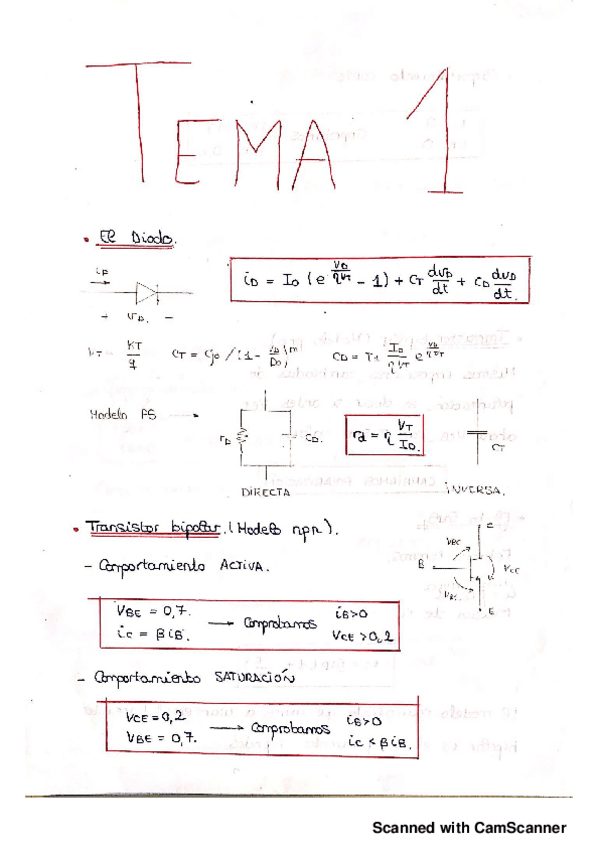 TEMA 1
• El Diodo.
iD
+ VD. -
iD = I0 (e^(VD/ηVT) - 1) + CT dvD/dt + CD dvD/dt.
VT = KT/q
CD = τT I0/ηVT e^(VD/ηVT)
Modelo PS →
rD
CD.
rd = η VT/ID.
CT
DIRECTA
INVERSA.
• Transistor bipolar. (Modelo npn).
- Comportamiento ACTIVA.
C
VBC
B
VCE
VBE
E
VBE = 0,7. → Comprobamos iB>0
ic = βiB. VCE > 0,2
- Comportamiento SATURACIÓN
VCE = 0,2 → Comprobamos iB>0
VBE = 0,7. ic < βiB.
Scanned with CamScanner